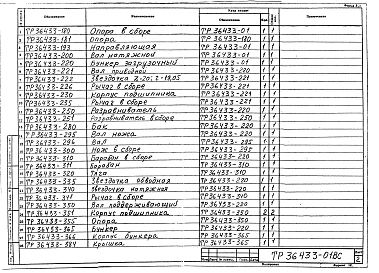 Обозначение Наименование Обозначение Примечание
ТР 36433-180 Опора в сборе ТР 36433-01 1 1
ТР 36433-181 Опора ТР 36433-180 1 1
ТР 36433-193 Направляющая ТР 36433-01 1 1
ТР 36433-200 Вал натяжной ТР 36433-01 1 1
ТР 36433-220 Бункер загрузочный ТР 36433-01 1 1
ТР 36433-221 Вал приводной ТР 36433-220 1 1
ТР 36433-222 Звездочка ТР 36433-221 1 1
ТР 36433-226 Рычаг в сборе ТР 36433-221 1 1
ТР 36433-230 Корпус подшипника ТР 36433-221 1 1
ТР 36433-235 Рычаг в сборе ТР 36433-221 1 1
ТР 36433-250 Разравниватель ТР 36433-220 1 1
ТР 36433-251 Разравниватель в сборе ТР 36433-250 1 1
ТР 36433-280 Бак ТР 36433-220 1 1
ТР 36433-295 Вал ножа ТР 36433-220 1 1
ТР 36433-296 Вал ТР 36433-295 1 1
ТР 36433-300 Нож в сборе ТР 36433-295 1 1
ТР 36433-310 Барабан в сборе ТР 36433-220 1 1
ТР 36433-311 Барабан ТР 36433-310 1 1
ТР 36433-320 Тяга ТР 36433-310 1 1
ТР 36433-335 Звездочка обводная ТР 36433-220 1 1
ТР 36433-340 Звездочка натяжная ТР 36433-220 1 1
ТР 36433-341 Рычаг в сборе ТР 36433-340 1 1
ТР 36433-350 Вал поддерживающий ТР 36433-220 1 1
ТР 36433-351 Корпус подшипника ТР 36433-350 2 2
ТР 36433-355 Опора ТР 36433-220 1 1
ТР 36433-365 Бункер ТР 36433-220 1 1
ТР 36433-366 Корпус бункера ТР 36433-365 1 1
ТР 36433-384 Крышка ТР 36433-365 1 1
ТР 36433-01ВС